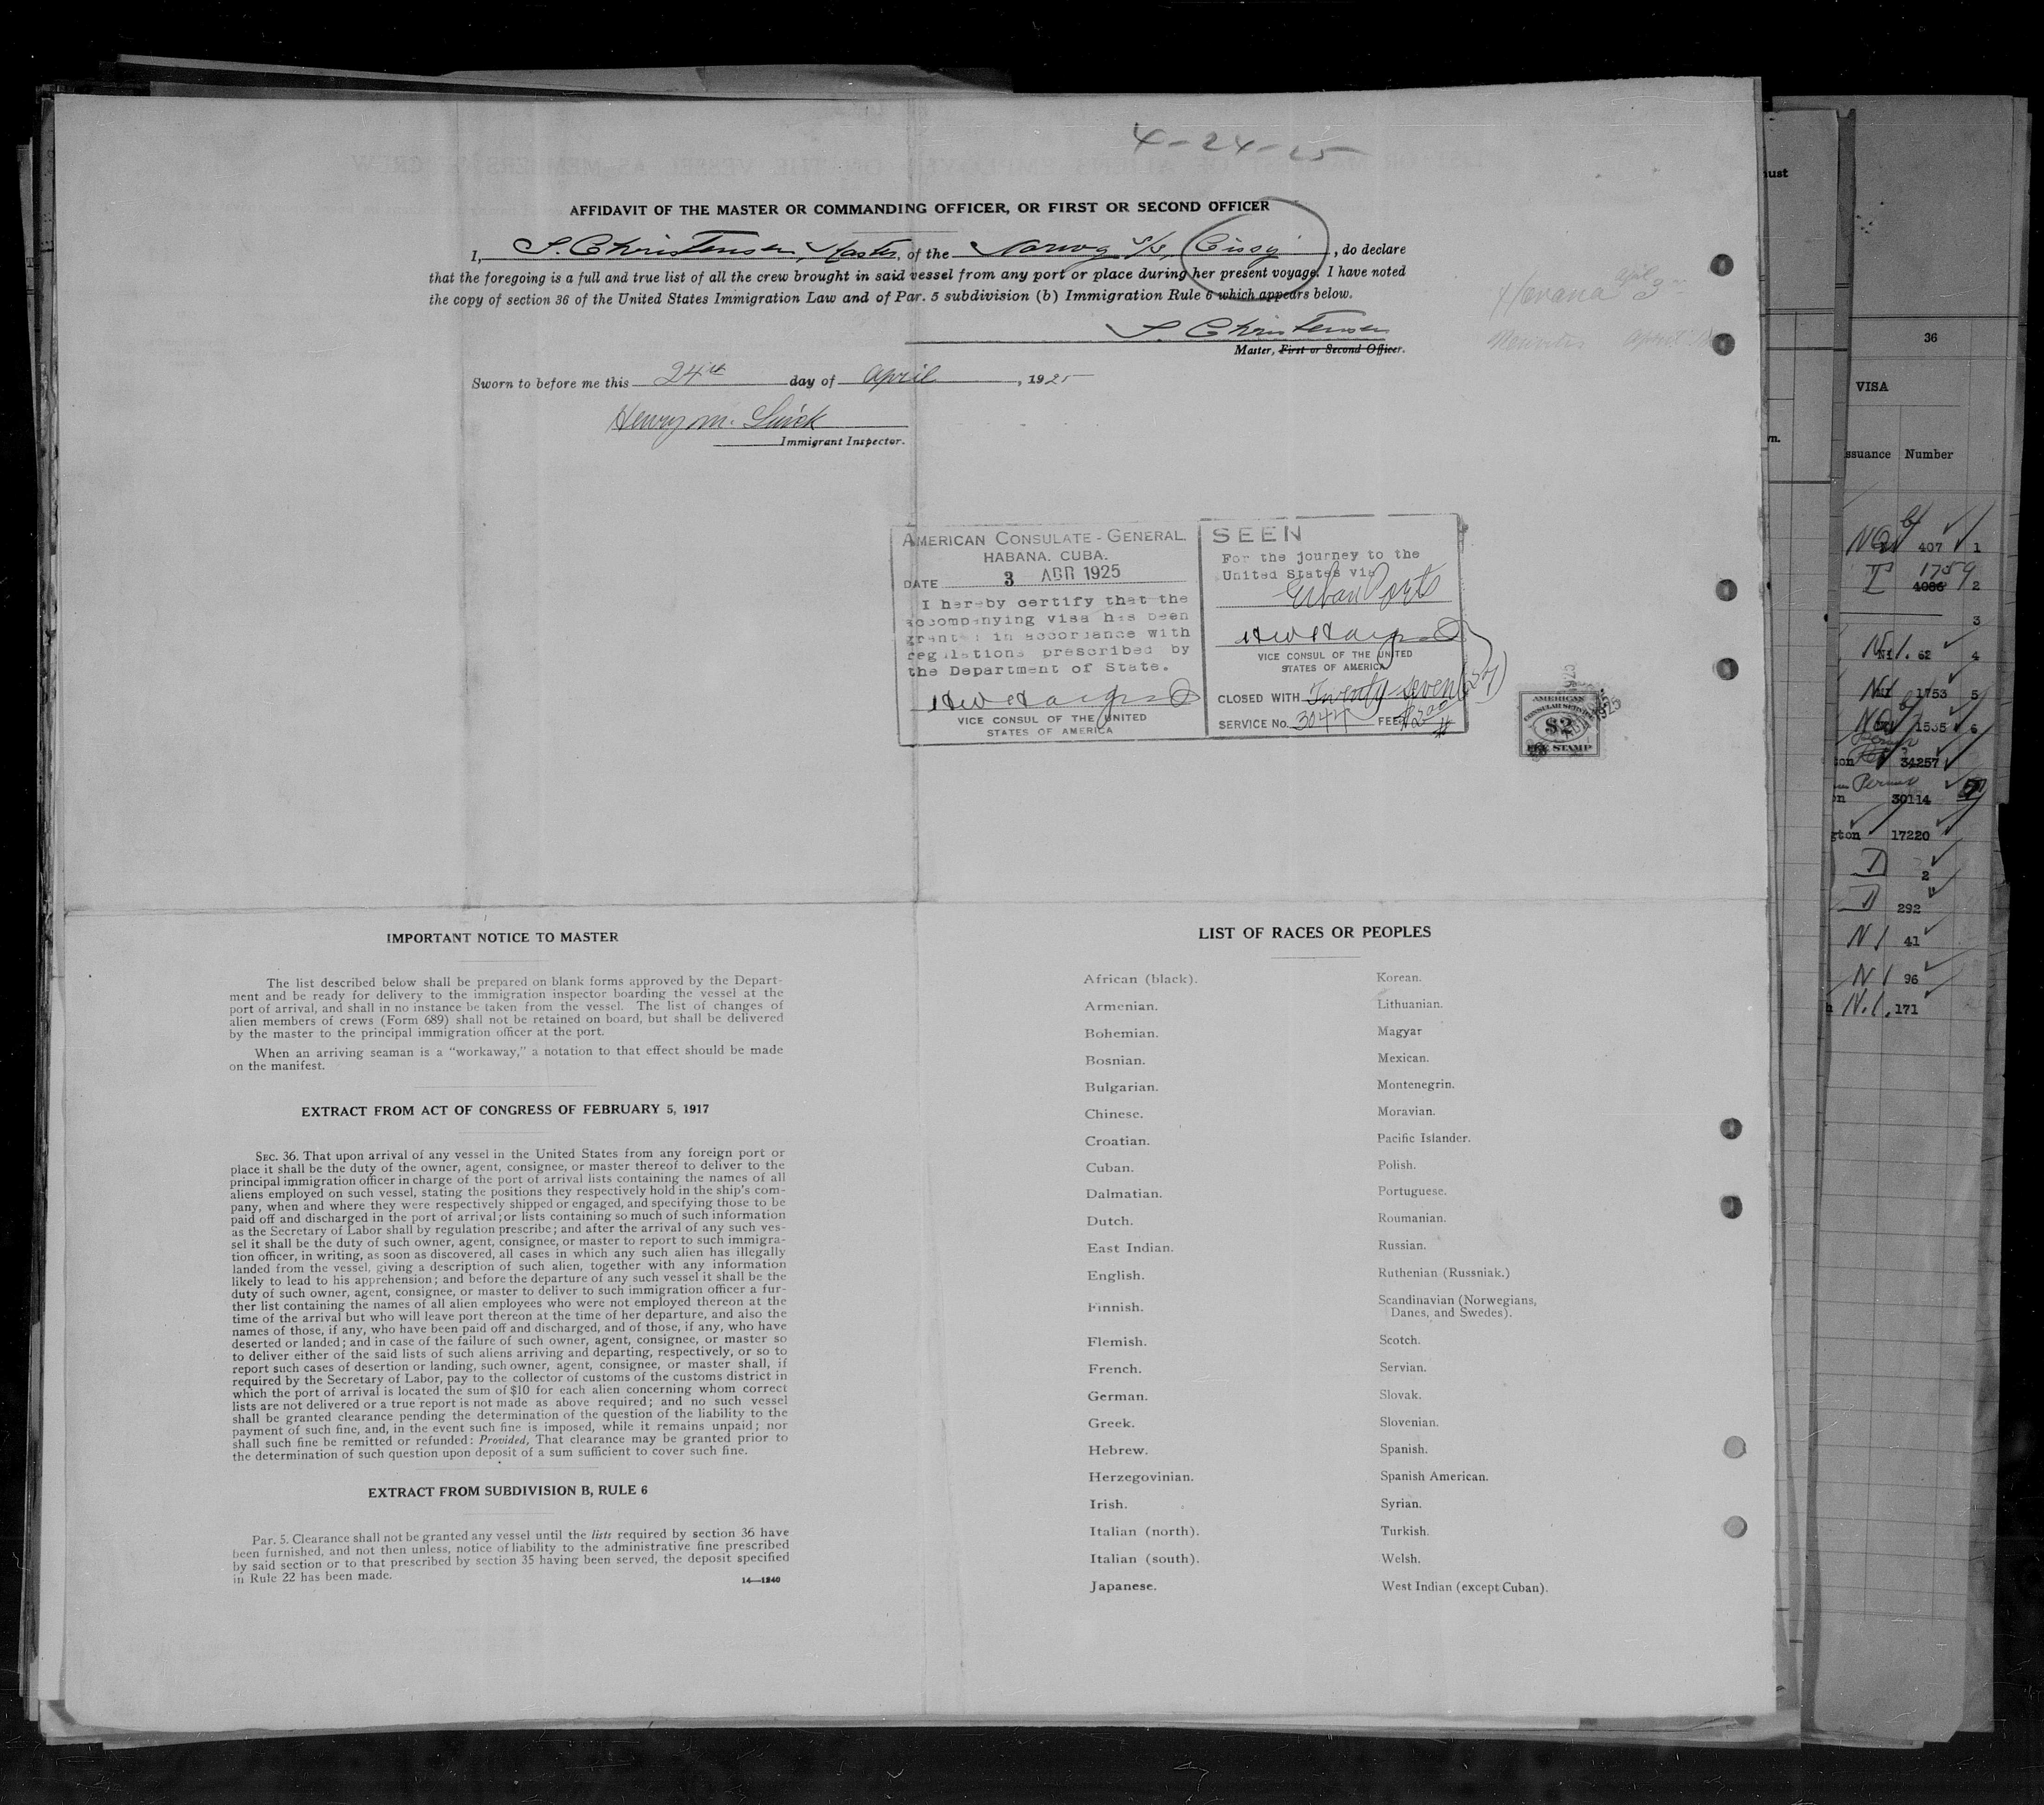 4-24-25
AFFIDAVIT OF THE MASTER OR COMMANDING OFFICER, OR FIRST OR SECOND OFFICER
I, S. Christensen, Master, of the Norweg S/S, Cissy, do declare
that the foregoing is a full and true list of all the crew brought in said vessel from any port or place during her present voyage. I have noted
the copy of section 36 of the United States Immigration Law and of Par. 5 subdivision (b) Immigration Rule 6 which appears below.
S. Christensen
Master, First or Second Officer.
Sworn to before me this 24th day of April, 1925
Henry M.
Immigrant Inspector.
Havana April 3
April
AMERICAN CONSULATE-GENERAL.
HABANA. CUBA.
DATE 3 ABR 1925
I hereby certify that the
accompanying visa has been
granted in accordance with
regulations prescribed by
the Department of State.
VICE CONSUL OF THE UNITED
STATES OF AMERICA
SEEN
For the journey to the
United States via
Cuban Ports
VICE CONSUL OF THE UNITED
STATES OF AMERICA
CLOSED WITH Twenty-seven (27)
SERVICE No. 3044 FEE $2.00
AMERICAN
CONSULAR SERVICE
$2
FEE STAMP
IMPORTANT NOTICE TO MASTER
The list described below shall be prepared on blank forms approved by the Depart-
ment and be ready for delivery to the immigration inspector boarding the vessel at the
port of arrival, and shall in no instance be taken from the vessel. The list of changes of
alien members of crews (Form 689) shall not be retained on board, but shall be delivered
by the master to the principal immigration officer at the port.
When an arriving seaman is a "workaway," a notation to that effect should be made
on the manifest.
EXTRACT FROM ACT OF CONGRESS OF FEBRUARY 5, 1917
SEC. 36. That upon arrival of any vessel in the United States from any foreign port or
place it shall be the duty of the owner, agent, consignee, or master thereof to deliver to the
principal immigration officer in charge of the port of arrival lists containing the names of all
aliens employed on such vessel, stating the positions they respectively hold in the ship's com-
pany, when and where they were respectively shipped or engaged, and specifying those to be
paid off and discharged in the port of arrival; or lists containing so much of such information
as the Secretary of Labor shall by regulation prescribe; and after the arrival of any such ves-
sel it shall be the duty of such owner, agent, consignee, or master to report to such immigra-
tion officer, in writing, as soon as discovered, all cases in which any such alien has illegally
landed from the vessel, giving a description of such alien, together with any information
likely to lead to his apprehension; and before the departure of any such vessel it shall be the
duty of such owner, agent, consignee, or master to deliver to such immigration officer a fur-
ther list containing the names of all alien employees who were not employed thereon at the
time of the arrival but who will leave port thereon at the time of her departure, and also the
names of those, if any, who have been paid off and discharged, and of those, if any, who have
deserted or landed; and in case of the failure of such owner, agent, consignee, or master so
to deliver either of the said lists of such aliens arriving and departing, respectively, or so to
report such cases of desertion or landing, such owner, agent, consignee, or master shall, if
required by the Secretary of Labor, pay to the collector of customs of the customs district in
which the port of arrival is located the sum of $10 for each alien concerning whom correct
lists are not delivered or a true report is not made as above required; and no such vessel
shall be granted clearance pending the determination of the question of the liability to the
payment of such fine, and, in the event such fine is imposed, while it remains unpaid; nor
shall such fine be remitted or refunded: Provided, That clearance may be granted prior to
the determination of such question upon deposit of a sum sufficient to cover such fine.
EXTRACT FROM SUBDIVISION B, RULE 6
Par. 5. Clearance shall not be granted any vessel until the lists required by section 36 have
been furnished, and not then unless, notice of liability to the administrative fine prescribed
by said section or to that prescribed by section 35 having been served, the deposit specified
in Rule 22 has been made.
14—1240
LIST OF RACES OR PEOPLES
African (black).
Armenian.
Bohemian.
Bosnian.
Bulgarian.
Chinese.
Croatian.
Cuban.
Dalmatian.
Dutch.
East Indian.
English.
Finnish.
Flemish.
French.
German.
Greek.
Hebrew.
Herzegovinian.
Irish.
Italian (north).
Italian (south).
Japanese.
Korean.
Lithuanian.
Magyar
Mexican.
Montenegrin.
Moravian.
Pacific Islander.
Polish.
Portuguese.
Roumanian.
Russian.
Ruthenian (Russniak.)
Scandinavian (Norwegians,
Danes, and Swedes).
Scotch.
Servian.
Slovak.
Slovenian.
Spanish.
Spanish American.
Syrian.
Turkish.
Welsh.
West Indian (except Cuban).
ust
wn.
36
VISA
ssuance Number
407 1
1759
4086 2
3
N1. 62 4
N1 1753 5
1535 6
on 34257
Permit
n 30114
gton 17220
D 2
D 292
N1 41
N1 96
h N.1. 171